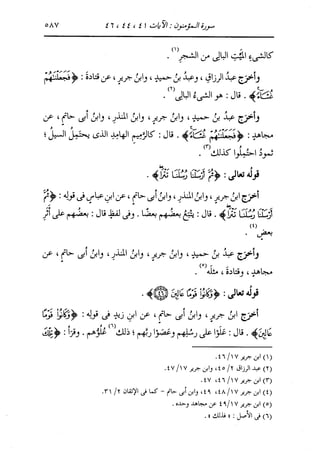 سورة المؤمنون : الآيات ٤١ ، ٤٤ ، ٤٦ ٥٨٧
كالشىءِ الميِّتِ البالى من الشجرِ(١) .
وأخرَج عبدُ الرزاقِ ، وعبدُ بنُ حميدٍ ، وابنُ جريرٍ ، عن قتادةَ : ﴿فَجَعَلْنَٰهُمْ
غُثَآءً﴾ . قال : هو الشىءُ البالى(٢) .
وأخرَج عبدُ بنُ حميدٍ ، وابنُ جريرٍ ، وابنُ المنذرِ ، وابنُ أبى حاتمٍ ، عن
مجاهدٍ : ﴿فَجَعَلْنَٰهُمْ غُثَآءً﴾ . قال : كالرميمِ الهامدِ الذى يحتمِلُ السيلُ ؛
ثمودُ احتُمِلوا كذلك(٣) .
قولُه تعالى : ﴿ثُمَّ أَرْسَلْنَا رُسُلَنَا تَتْرَا﴾ .
أخرَج ابنُ جريرٍ ، وابنُ المنذرِ ، وابنُ أبى حاتمٍ ، عن ابنِ عباسٍ فى قولِه : ﴿ثُمَّ
أَرْسَلْنَا رُسُلَنَا تَتْرَا﴾ . قال : يَتْبَعُ بعضُهم بعضًا . وفى لفظٍ قال : بعضُهم على أثَرِ
بعضٍ(٤) .
وأخرَج عبدُ بنُ حميدٍ ، وابنُ جريرٍ ، وابنُ المنذرِ ، وابنُ أبى حاتمٍ ، عن
مجاهدٍ ، وقتادةَ ، مثلَه(٥) .
قولُه تعالى : ﴿وَكَانُوا۟ قَوْمًا عَالِينَ ٤٦﴾ .
أخرَج ابنُ جريرٍ ، وابنُ أبى حاتمٍ ، عن ابنِ زيدٍ فى قولِه : ﴿وَكَانُوا۟ قَوْمًا
عَالِينَ﴾ . قال : علَوْا على رسلِهم وعصَوْا ربَّهم ؛ ذلك(٦) عُلُوُّهم . وقرَأ : ﴿تِلْكَ
(١) ابن جرير ١٧/ ٤٦.
(٢) عبد الرزاق ٢/ ٤٥، وابن جرير ١٧/ ٤٧.
(٣) ابن جرير ١٧/ ٤٦، ٤٧.
(٤) ابن جرير ١٧/ ٤٨، ٤٩، وابن أبى حاتم - كما فى الإتقان ٢/ ٣١.
(٥) ابن جرير ١٧/ ٤٩ عن مجاهد وحده .
(٦) فى الأصل : « فذلك » .